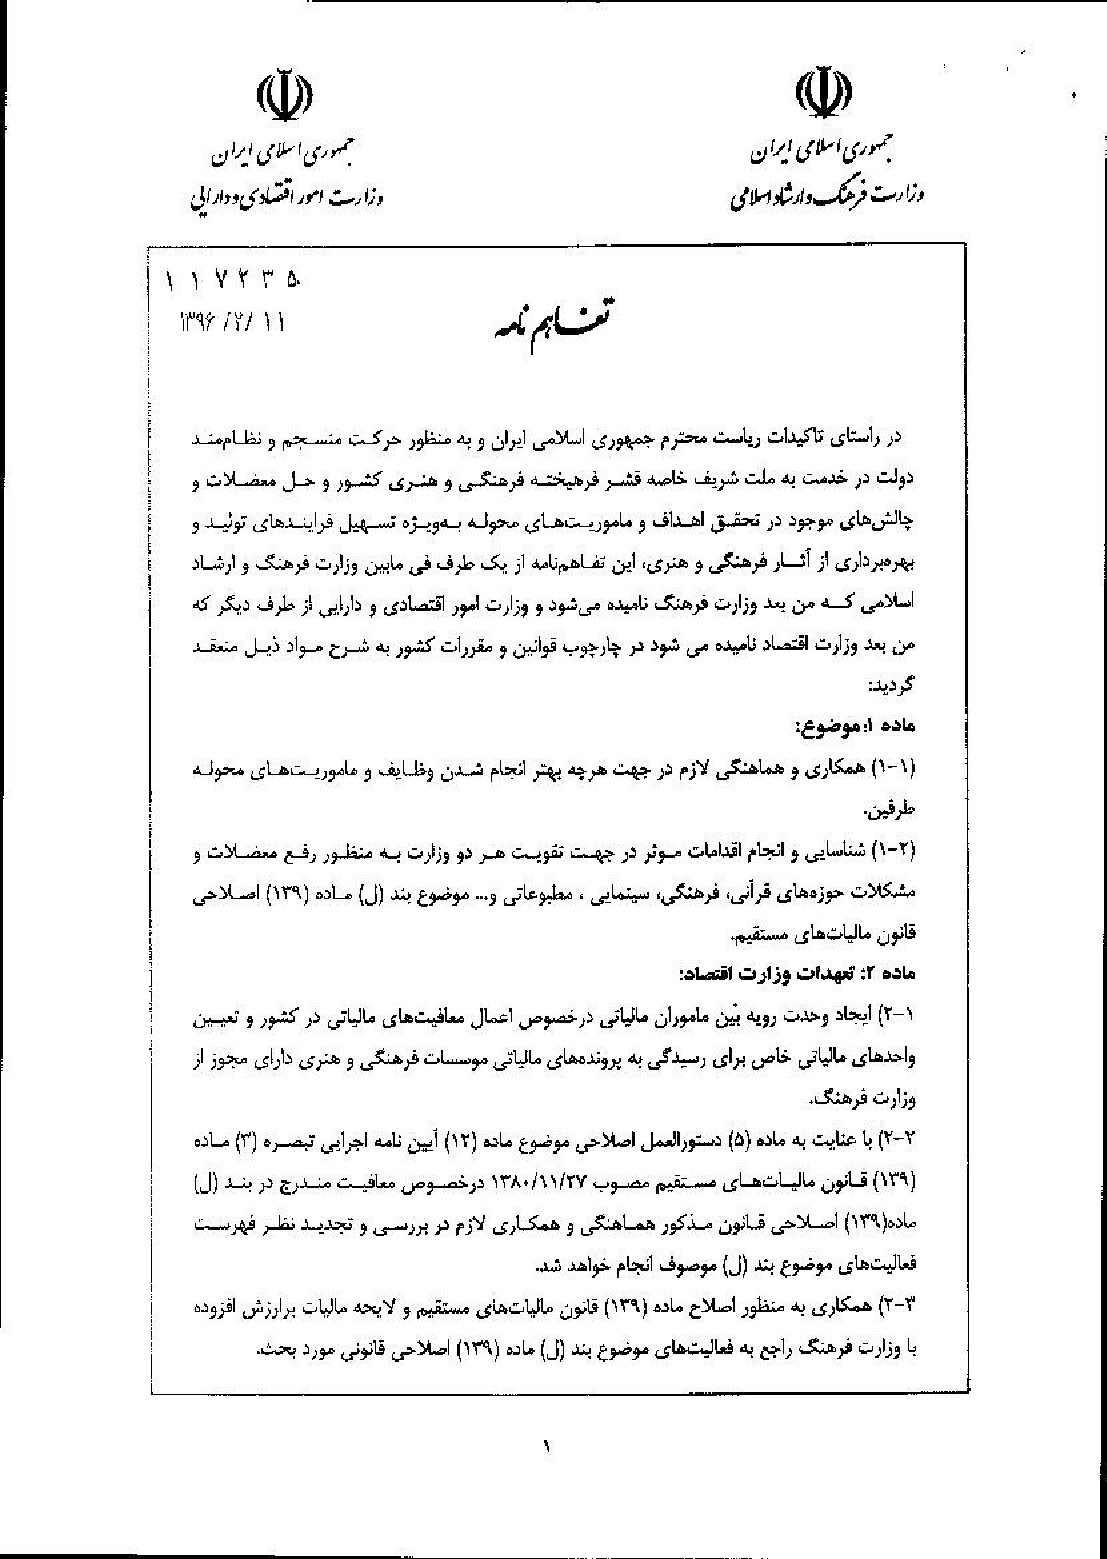 جمهوری اسلامی ایران
وزارت فرهنگ و ارشاد اسلامی
جمهوری اسلامی ایران
وزارت امور اقتصادی و دارایی
۱۱۷۲۳۵
۱۳۹۶/۲/۱۱
تفاهم نامه
در راستای تاکیدات ریاست محترم جمهوری اسلامی ایران و به منظور حرکت منسجم و نظام‌مند
دولت در خدمت به ملت شریف خاصه قشر فرهیخته فرهنگی و هنری کشور و حل معضلات و
چالش‌های موجود در تحقق اهداف و ماموریت‌های محوله به‌ویژه تسهیل فرایندهای تولید و
بهره‌برداری از آثار فرهنگی و هنری، این تفاهم‌نامه از یک طرف فی مابین وزارت فرهنگ و ارشاد
اسلامی که من بعد وزارت فرهنگ نامیده می‌شود و وزارت امور اقتصادی و دارایی از طرف دیگر که
من بعد وزارت اقتصاد نامیده می شود در چارچوب قوانین و مقررات کشور به شرح مواد ذیل منعقد
گردید:
ماده ۱: موضوع:
(۱-۱) همکاری و هماهنگی لازم در جهت هرچه بهتر انجام شدن وظایف و ماموریت‌های محوله
طرفین.
(۱-۲) شناسایی و انجام اقدامات موثر در جهت تقویت هر دو وزارت به منظور رفع معضلات و
مشکلات حوزه‌های قرآنی، فرهنگی، سینمایی ، مطبوعاتی و... موضوع بند (ل) ماده (۱۳۹) اصلاحی
قانون مالیات‌های مستقیم.
ماده ۲: تعهدات وزارت اقتصاد:
۲-۱) ایجاد وحدت رویه بین ماموران مالیاتی درخصوص اعمال معافیت‌های مالیاتی در کشور و تعیین
واحدهای مالیاتی خاص برای رسیدگی به پرونده‌های مالیاتی موسسات فرهنگی و هنری دارای مجوز از
وزارت فرهنگ.
۲-۲) با عنایت به ماده (۵) دستورالعمل اصلاحی موضوع ماده (۱۲) آیین نامه اجرایی تبصره (۳) ماده
(۱۳۹) قانون مالیات‌های مستقیم مصوب ۱۳۸۰/۱۱/۲۷ درخصوص معافیت مندرج در بند (ل)
ماده(۱۳۹) اصلاحی قانون مذکور هماهنگی و همکاری لازم در بررسی و تجدید نظر فهرست
فعالیت‌های موضوع بند (ل) موصوف انجام خواهد شد.
۲-۳) همکاری به منظور اصلاح ماده (۱۳۹) قانون مالیات‌های مستقیم و لایحه مالیات برارزش افزوده
با وزارت فرهنگ راجع به فعالیت‌های موضوع بند (ل) ماده (۱۳۹) اصلاحی قانونی مورد بحث.
۱